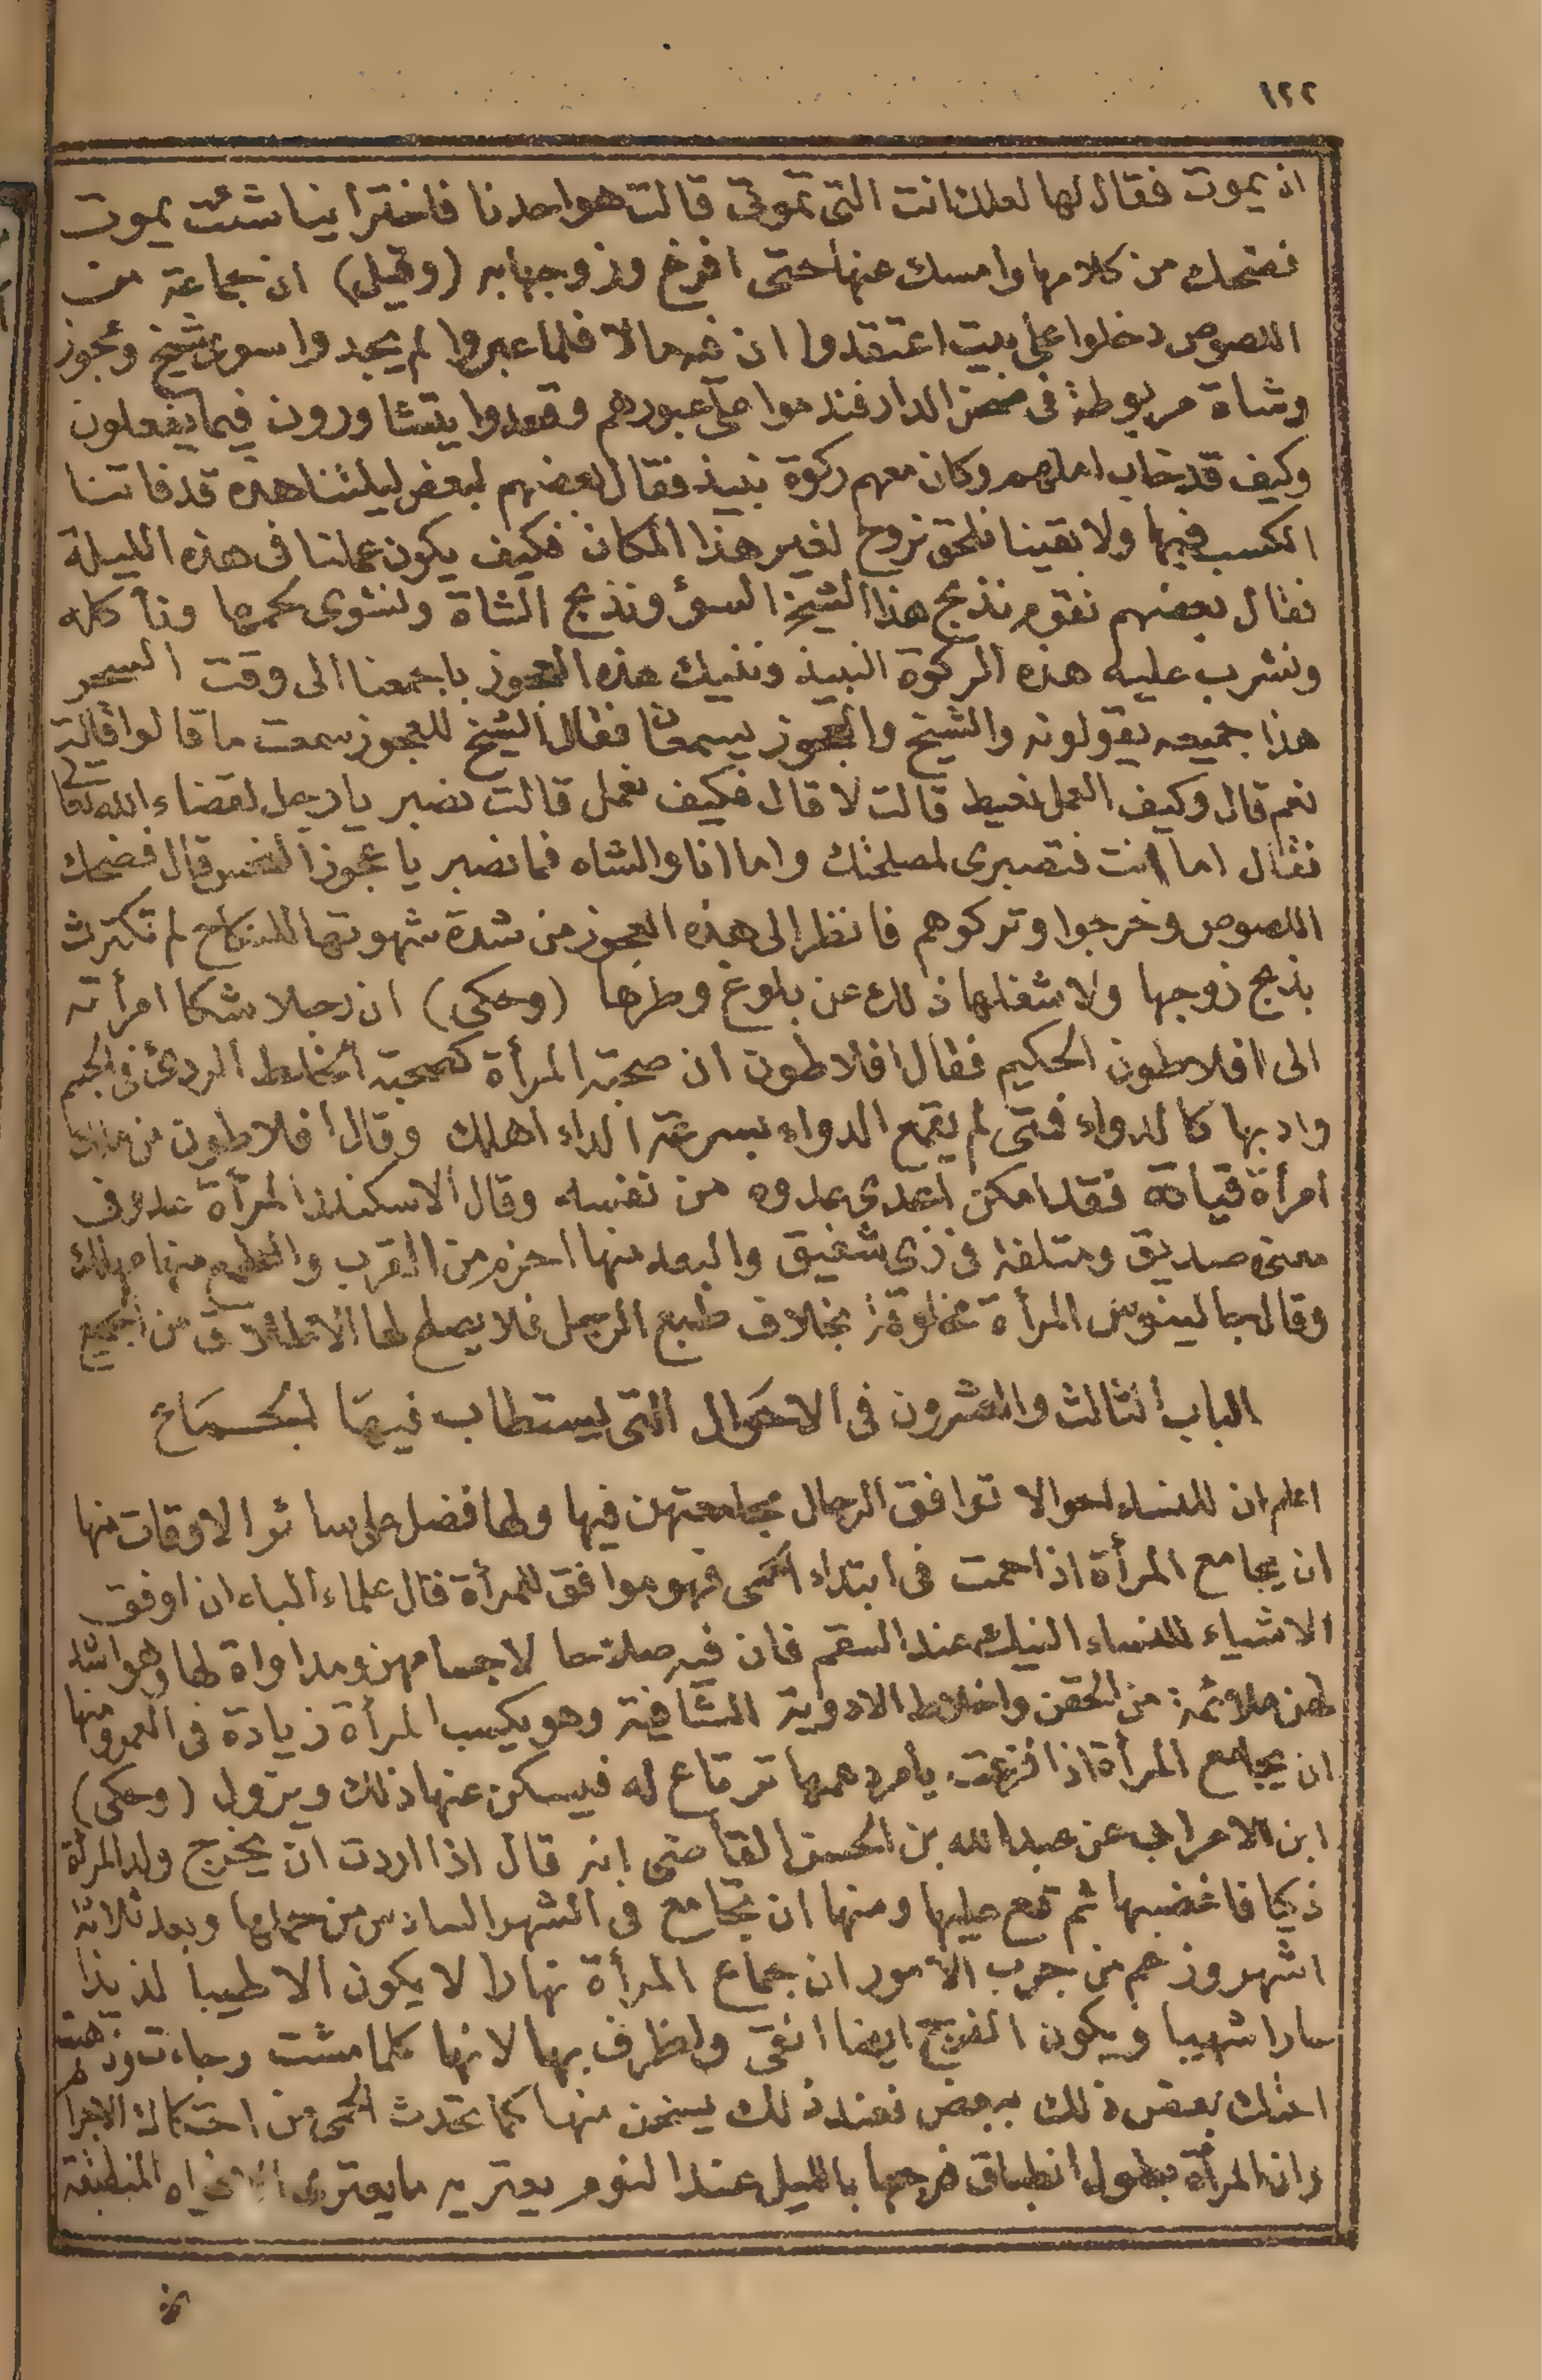 ١٢٢
ان يموت فقال لها لعلك انت التى تموتى قالت هو احدنا فاختر اينا شئت يموت
فضحك من كلامها وامسك عنها حتى افرخ وزوجها به (وقيل) ان جماعة من
اللصوص دخلوا على بيت اعتقدوا ان فيه مالا فلما عبروا لم يجدوا سوى شيخ وعجوز
وشاة مربوطة فى صحن الدار فندموا على عبورهم وقعدوا يتشاورون فيما يفعلون
وكيف قد خاب املهم وكان معهم ركوة نبيذ فقال بعضهم لبعض ليلتنا هذه قد فاتنا
الكسب فيها ولا بقينا نلحق نروح لغير هذا المكان فكيف يكون عملنا فى هذه الليلة
فقال بعضهم نقوم نذبح هذا الشيخ السوء ونذبح الشاة ونشوى لحمها ونأكله
ونشرب عليه هذه الركوة النبيذ وننيك هذه العجوز باجمعنا الى وقت السحر
هذا جميعه يقولونه والشيخ والعجوز يسمعان فقال الشيخ للعجوز سمعت ما قالوا قالت
نعم قال وكيف العمل نعيط قالت لا قال فكيف نعمل قالت نصبر يا رجل لقضاء الله تعالى
فقال اما انت فتصبرى لمصلحتك واما انا والشاه فما نصبر يا عجوز النحس قال فضحك
اللصوص وخرجوا وتركوهم فانظر الى هذه العجوز من شدة شهوتها للنكاح لم تكترث
بذبح زوجها ولا شغلها ذلك عن بلوغ وطرها (وحكى) ان رجلا شكا امرأته
الى افلاطون الحكيم فقال افلاطون ان صحبة المرأة كصحبة الخلط الردئ فى الجسم
وادبها كالدواء فمتى لم يقمع الدواء بسرعة الداء اهلك وقال افلاطون من ملك
امرأة قياده فقد امكن اعدى عدوه من نفسه وقال الاسكندر المرأة عدو فى
معنى صديق ومتلفة فى زى شفيق والبعد منها احزم من القرب والطمع منها مهلك
وقال جالينوس المرأة مخلوقة بخلاف طبع الرجل فلا يصلح لها الا الطلاق من الجميع
الباب الثالث والعشرون فى الاحوال التى يستطاب فيها الجماع
اعلم ان للنساء احوالا توافق الرجال مجامعتهن فيها ولها فضل على سائر الاوقات منها
ان يجامع المرأة اذا حمت فى ابتداء الحمى فهو موافق للمرأة قال علماء الباه ان اوفق
الاشياء للنساء النيك عند السقم فان فيه صلاحا لاجسامهن ومداواة لها وهو اشد
لهن ملائمة من الحقن واخلاط الادوية الشافية وهو يكسب المرأة زيادة فى العمر ومنها
ان يجامع المرأة اذا فزعت بامر دهمها ترتاع له فيسكن عنها ذلك ويزول (وحكى)
ابن الاعرابى عن عبد الله بن الحسن القاضى انه قال اذا اردت ان يخرج ولد المرأة
ذكيا فاغضبها ثم قع عليها ومنها ان تجامع فى الشهر السادس من حملها وبعد ثلاثة
اشهر وزعم من جرب الامور ان جماع المرأة نهارا لا يكون الا طيبا لذيذا
حارا شهيا ويكون الفرج ايضا انقى واظرف بها لانها كلما مشت وجاءت وذهبت
احتك بعض ذلك ببعض فعند ذلك يسخن منها كما تحدث الحمى من احتكاك الاجرا
وان المرأة بطول انطباق فرجها بالليل عند النوم يعتريه ما يعترى الافواه المنطبقة